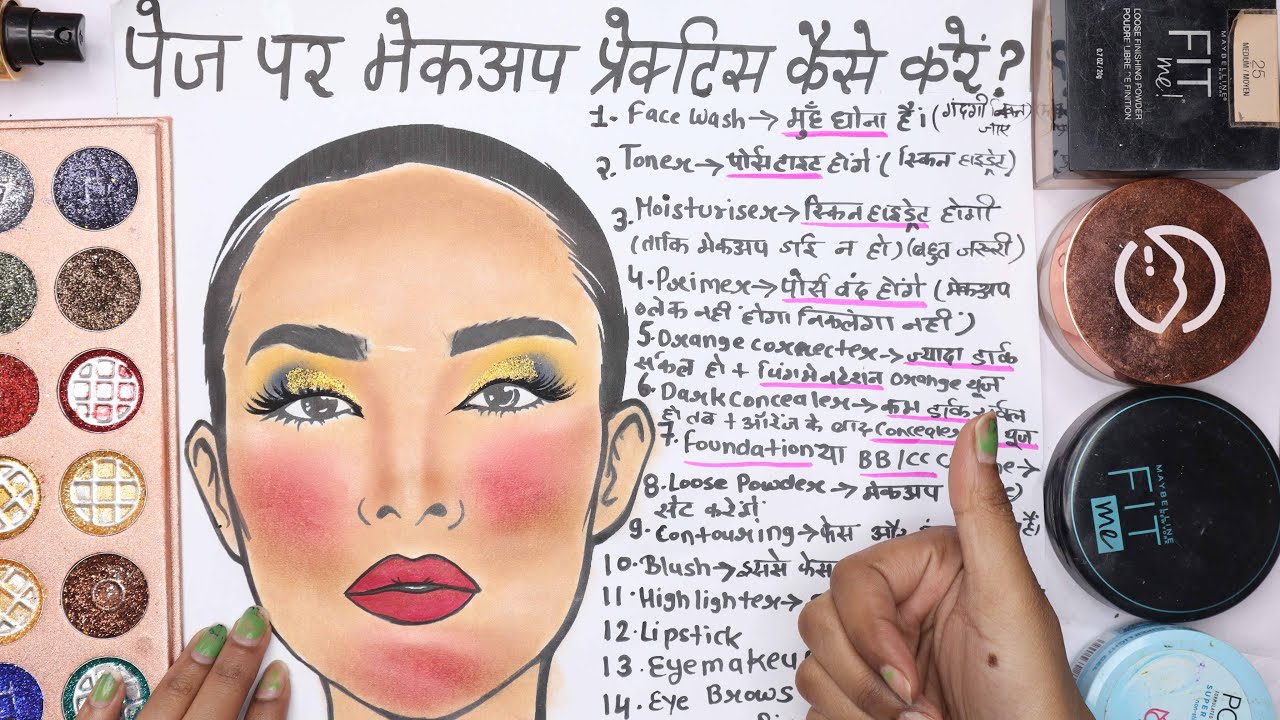 पेज पर मेकअप प्रेक्टिस कैसे करें?
1. Face Wash → मुहँ धोना है। (गंदगी निकल जाए
2. Toner → पोर्स टाइट होंगे (स्किन हाइड्रेट)
3. Moisturiser → स्किन हाइड्रेट होगी
(ताकि मेकअप ड्राई न हो) (बहुत जरूरी)
4. Primer → पोर्स बंद होंगे (मेकअप
नहीं होगा निकलेगा नहीं)
5. Orange correcter → ज्यादा डार्क
सर्कल हो + पिगमेनटेशन Orange यूज
6. Dark Concealer → कम डार्क
हो तब + ऑरेंज के बाद Concealer यूज
7. Foundation या BB/CC
8. Loose Powder → मेकअप
सेट करेगा
9. Contouring → फेस और
10. Blush → इससे फेस
11. Highlighter →
12. Lipstick
13. Eyemakeu
14. Eye Brows
MAYBELLINE
NEW YORK
FIT
me!
LOOSE FINISHING POWDER
POUDRE LIBRE DE FINITION
0.7 OZ/20g
25
MEDIUM/MOYEN
MAYBELLINE
NEW YORK
FIT
me
PO
SUPER